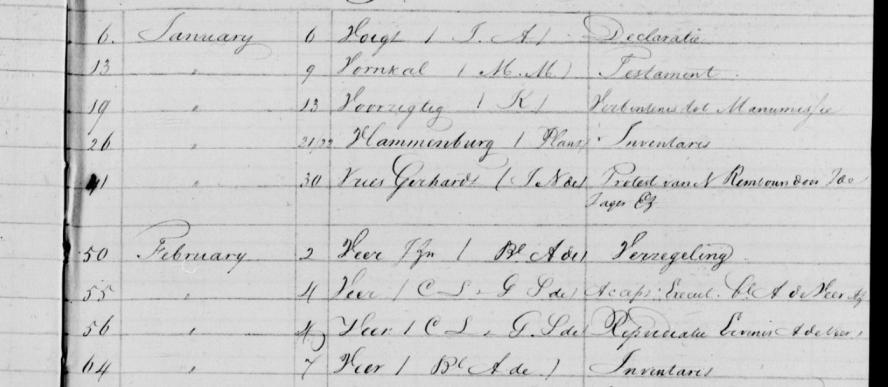 6. January 6 Voigt ( J. A ) Declaratie
13 " 9 Vornkal ( M. M ) Testament
19 " 13 Voorzigtig ( K ) Verbintenis tot Manumissie
26 " 21/22 Hammenburg ( Plant ) Inventaris
41 " 30 Vries Gerhards ( J N de ) Protest van N Rembour door
Jager
50 February 2 Veer ( Bl A de ) Verzegeling
55 " 4 Veer ( C L . G S de ) A de Veer
56 " 4 Veer ( C L . G. S de ) Repudiatie A de Veer
64 " 7 Veer ( Bl A de ) Inventaris